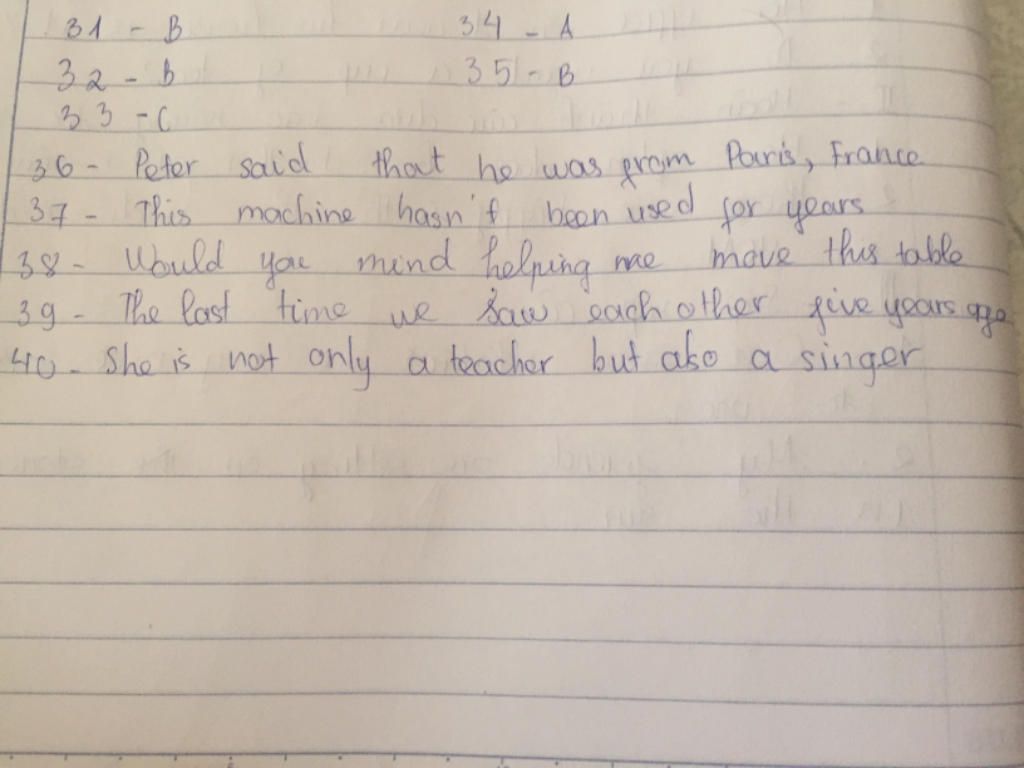 31 - B 34 - A
32 - B 35 - B
33 - C
36 - Peter said that he was from Paris, France
37 - This machine hasn't been used for years
38 - Would you mind helping me move this table
39 - The last time we saw each other five years ago
40 - She is not only a teacher but also a singer